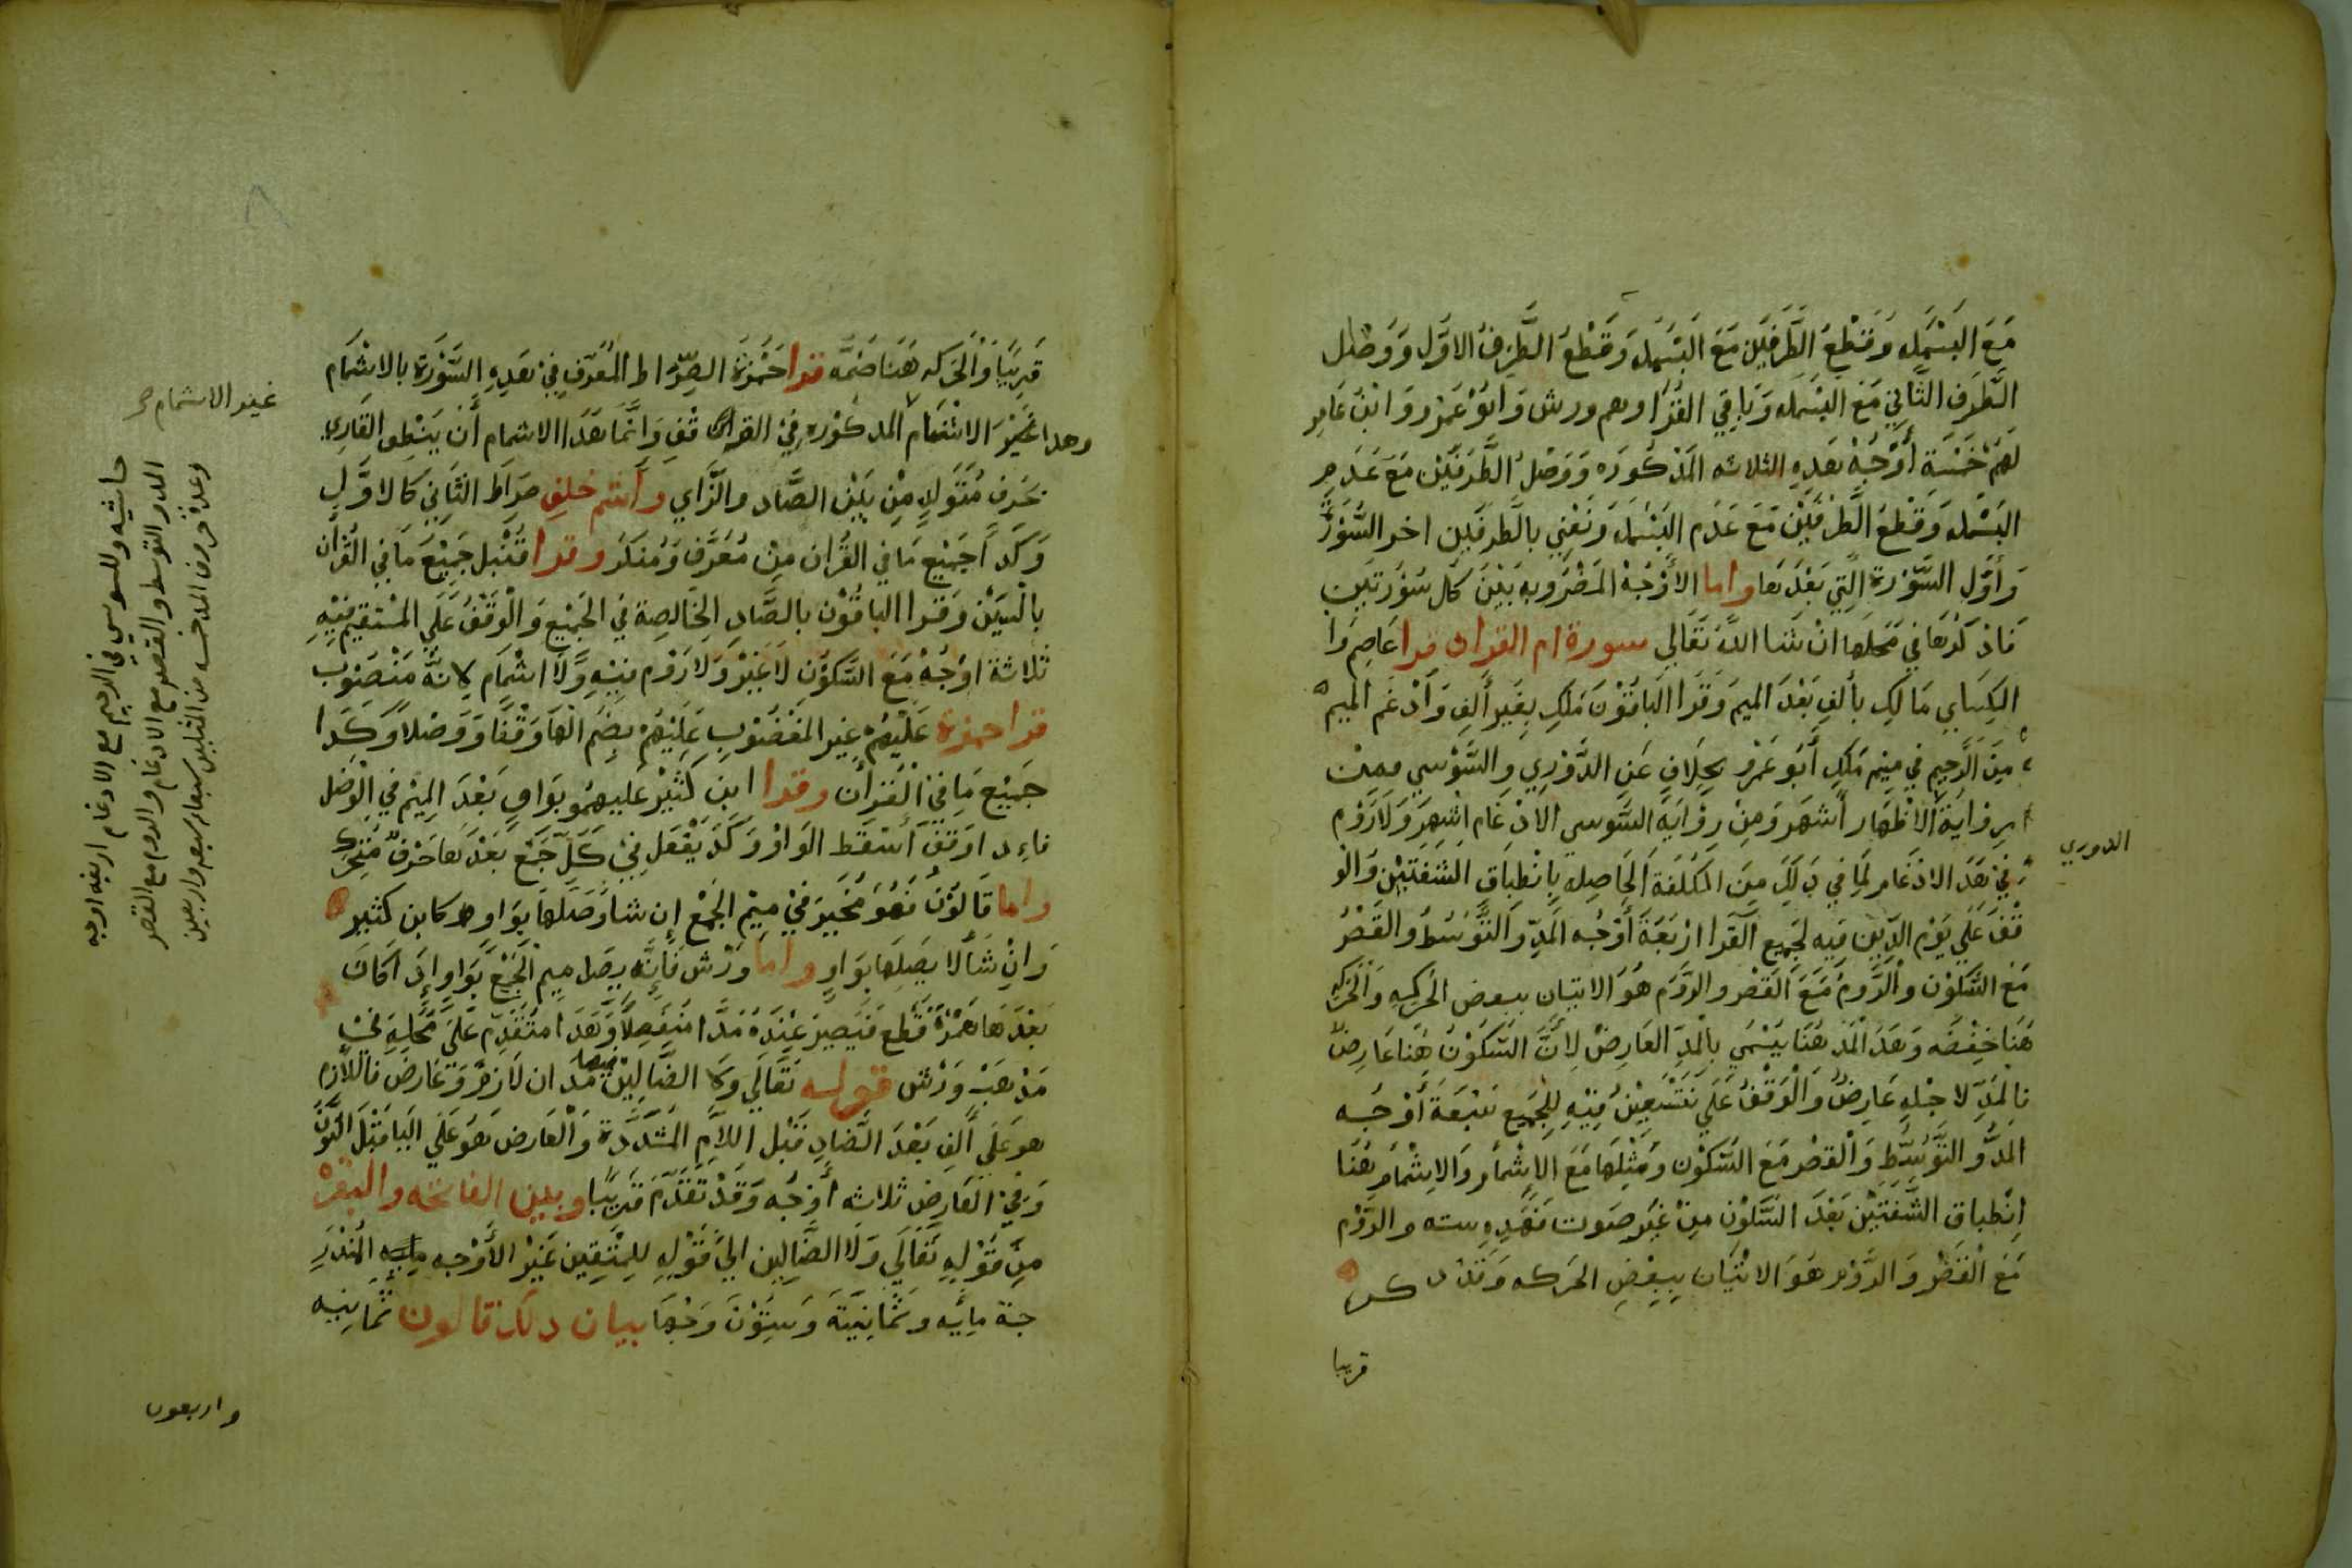 مَعَ البَسْمَلَه وَقَطْعِ الطَّرفَيْن مَعَ البَسْمَلَه وَقَطْعُ الطَّرِفُ الاوَّلِ وَوَصْل
الطَّرَفِ الثَّانِي مَعَ البَسْمَله وَبَاقِي القُرَّا وهم ورش وَابُوْ عَمْرو وَابْنُ عَامِر
لَهُمْ خَمْسَة أَوْجُهْ هَذِهِ الثلاثه المَذْكُورَه وَوَصْلُ الطَّرَفَيْنِ مَعَ عَدَم
البَسْمَله وَقَطْعُ الطَّرفَيْن مَعَ عَدَم البَسْمَله وَنَعْنِي بالطَّرفَين اخر السُّوْرَةِ
وَأَوَّل السُّوْرَة الَّتِي بَعْدَهَا واما الأَوْجُهْ المَضْرُوبه بَيْنَ كُل سُوْرَتَيْن
فَاذكُرُهَا في مَحَلهَا انْ شَا اللّهُ تَعَالي سورة ام القران قرا عَاصِم وا
الكِسَايي مَالِكِ بألفِ بَعْدَ الميمَ وَقَرَا البَاقُوْنَ مَلكِ بِغَير أَلِفِ وَأَدْغَم الميم
مِنَ الرَّحِيم في مِيْم مَلِكِ أَبُوْ عَمْرو بِخِلَافِ عَنِ الدُّوْرِي وَالسُّوْسِي فمِنْ
رِوَايَة الاظْهَار أَشْهَر وَمِنْ رِوَايَة السُّوسي الادْغَام اشهر وَلَا رَوْم
الدوري
فِي هَذَ الادْغَام لِمَا فِي ذَلكَ مِنَ الكُلْفَة الحَاصِلَه بِانْطِبَاقِ الشَّفَتَيْنِ وَالو
قْفُ عَلَي يَوْم الدّيْن فيه لِجَمِيع القُرَّا ارْبَعَةَ أَوْجُه المَدِّ وَالتَّوَسُّطُ وَالقَصْرُ
مَعَ السُّكُوْن وَالرَّوْمُ مَعَ القَصْر وَالرَّوْم هُوَ الاتيان ببعض الحَرَكه وَالحَرَكه
هُنَا خِفْضَه وَهَذَ المَدّ هُنَا يُسَمَّي بالْمَدِّ العَارِضْ لِانَّ السُّكُوْنُ هُنَا عَارِضٌ
فالمَدّ لاجْلِهِ عَارِضٌ وَالْوَقْفُ عَلَي نَسْتَعِيْنُ فِيْهِ لِلجَمِيع سَبْعَةَ أَوْجُه
المَدُّ وَالتَّوَسُّطِ وَالْقَصْر مَعَ السُّكُوْن وَمِثْلَهَا مَعَ الاِشْمَام وَالاِشْمَام هُنَا
اِنْطِبَاقِ الشَّفَتَيْن بَعْدَ السُّكُوْن مِنْ غَيْر صَوت فَهَذِهِ سته والرَّوْم
مَعَ الْقَصْر وَالرَّوْم هُوَ الاتْيَان بِبِعْضِ الحَرَكه وَقَدْ ذكر
قريبا
قَرِيْبًا وَالْحَرَكه هُنَا ضَمَّه قرا حَمْزَة الصِّرَاط المُعَرَّفِ فِي هَذِهِ السُّوْرَة بالاشْمَام
وهذا غَيْرَ الاشْمَام المذكوره في القراه قف وَانَّمَا هَذَا الاشمام أَنْ يَنْطِق القَارِي
غير الاشمام
بحَرف مُتَوَلد مِنْ بَيْن الصَّاد والزَّاي وأشم خلف صرَاط الثَّانِي كالاوَّلِ
وَكَذَا جَمِيْع مَا في القُرَان مِنْ مُعَرَّف وَمُنَكَر وقرا قُنْبل جَمِيْعَ مَا فِي القُرْأن
بالسِّيْن وَقَرا البَاقُوْن بالصَّادِ الخَالِصِة في الجَمِيْع وَالْوَقْفُ عَلَي المُسْتَقِيم فِيْهِ
ثَلاثة اوْجُهْ مَعَ السُّكُوْن لَا غَيْر وَلَا رَوْم فيْهِ وَلَا اشْمَام لانَّهُ مَنْصُوْب
قرا حمزة عَلَيْهُمْ غير المَغْضُوْبِ عَلَيْهُمْ بِضَمّ الْهَا وَقْفًا وَوَصْلًا وَكَذَا
جَمِيْع مَا فِيْ الْقُرأَن وقرا ابن كَثِيْر عَلَيهِمُو بِوَاوٍ بَعْدَ المِيْم في الْوَصْل
فاءِذ اوَقَفَ أَسْقَط الوَاوْ وَكَذَ يَفْعَل فِيْ كُلّ جَمْع بَعْدَهَا حَرْفٌ مُتَحَرك
واما قَالُوْنُ فَهُوَ مُخَيَر فيْ مِيْم الجَمْع إن شا وَصَلَهَا بِوَاوٍ كابن كثير
وَانْ شَا لا يَصِلهَا بوَاوٍ واما وَرْش فَإِنَّه يصَل مِيم الجَمْعَ بِوَاوِ إذَ اكَانَ
بَعْدَهَا هَمْزَةْ قَطْع فَيَصِيرُ عِنْدَهُ مَدًّا مُنْفَصِلًا وَهَذَ امُتَقَدِّم عَلَي مَحَلِهِ في
مَذهَبْ وَرْش قوله تَعَالَي وَلا الضَّالِيْن فيها مَدَّان لَازِمٌ وَعَارِض فاللَّازم
هو عَلَي أَلِفِ بَعْدَ الضَّادِ قَبْل اللَّامِ المُشَدَّدة وَالْعَارض هُوَ عَلَي اليَا قَبْلَ النُوْن
وَفِيْ العَارِض ثلاثه أَوجُه وَقَدْ تَقَدَّم قَرِيْبًا وبين الفاتحه والبقرة
مِنْ قَوْلِهِ تَعَالَي وَلَا الضَّالِين الي قَوْلهِ لِلمُتَّقِين غَيْر الأَوْجه المُنْدَرِ
جَة مِايه وثَمَانِيَةَ وَسِتُّوْنَ وَجْهًا بيان ذلك قالون ثَمَانِيه
واربعون
حاشيه وللسوسي في الرحيم مع الادغام اربعه اوجه
المد والتوسط والقصر مع الادغام والروم مع القصر